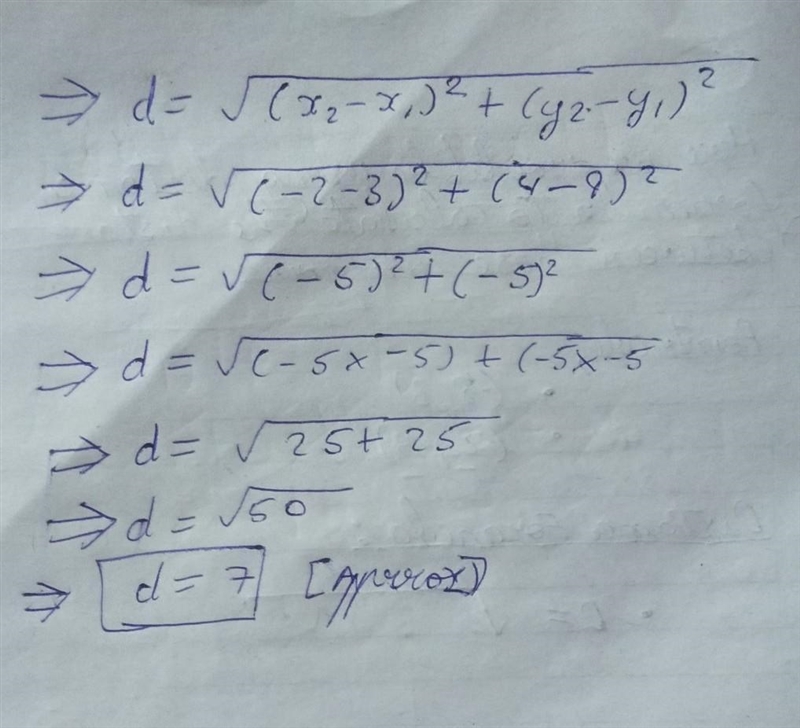 ⇒ d = √(x₂ - x₁)² + (y₂ - y₁)²
⇒ d = √(-2-3)² + (4-9)²
⇒ d = √(-5)² + (-5)²
⇒ d = √(-5x -5) + (-5x -5
⇒ d = √25 + 25
⇒ d = √50
⇒ d = 7 [Approx]